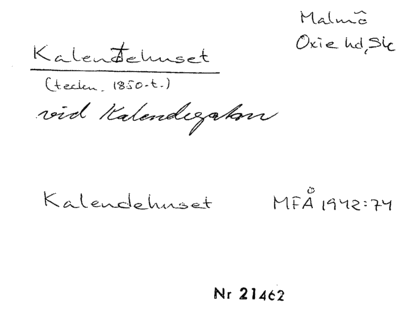 Malmö
Oxie hd, Sk
Kalendehuset
(teckn. 1850-t.)
vid Kalendegatan
Kalendehuset MFÅ 1942:74
Nr 21462